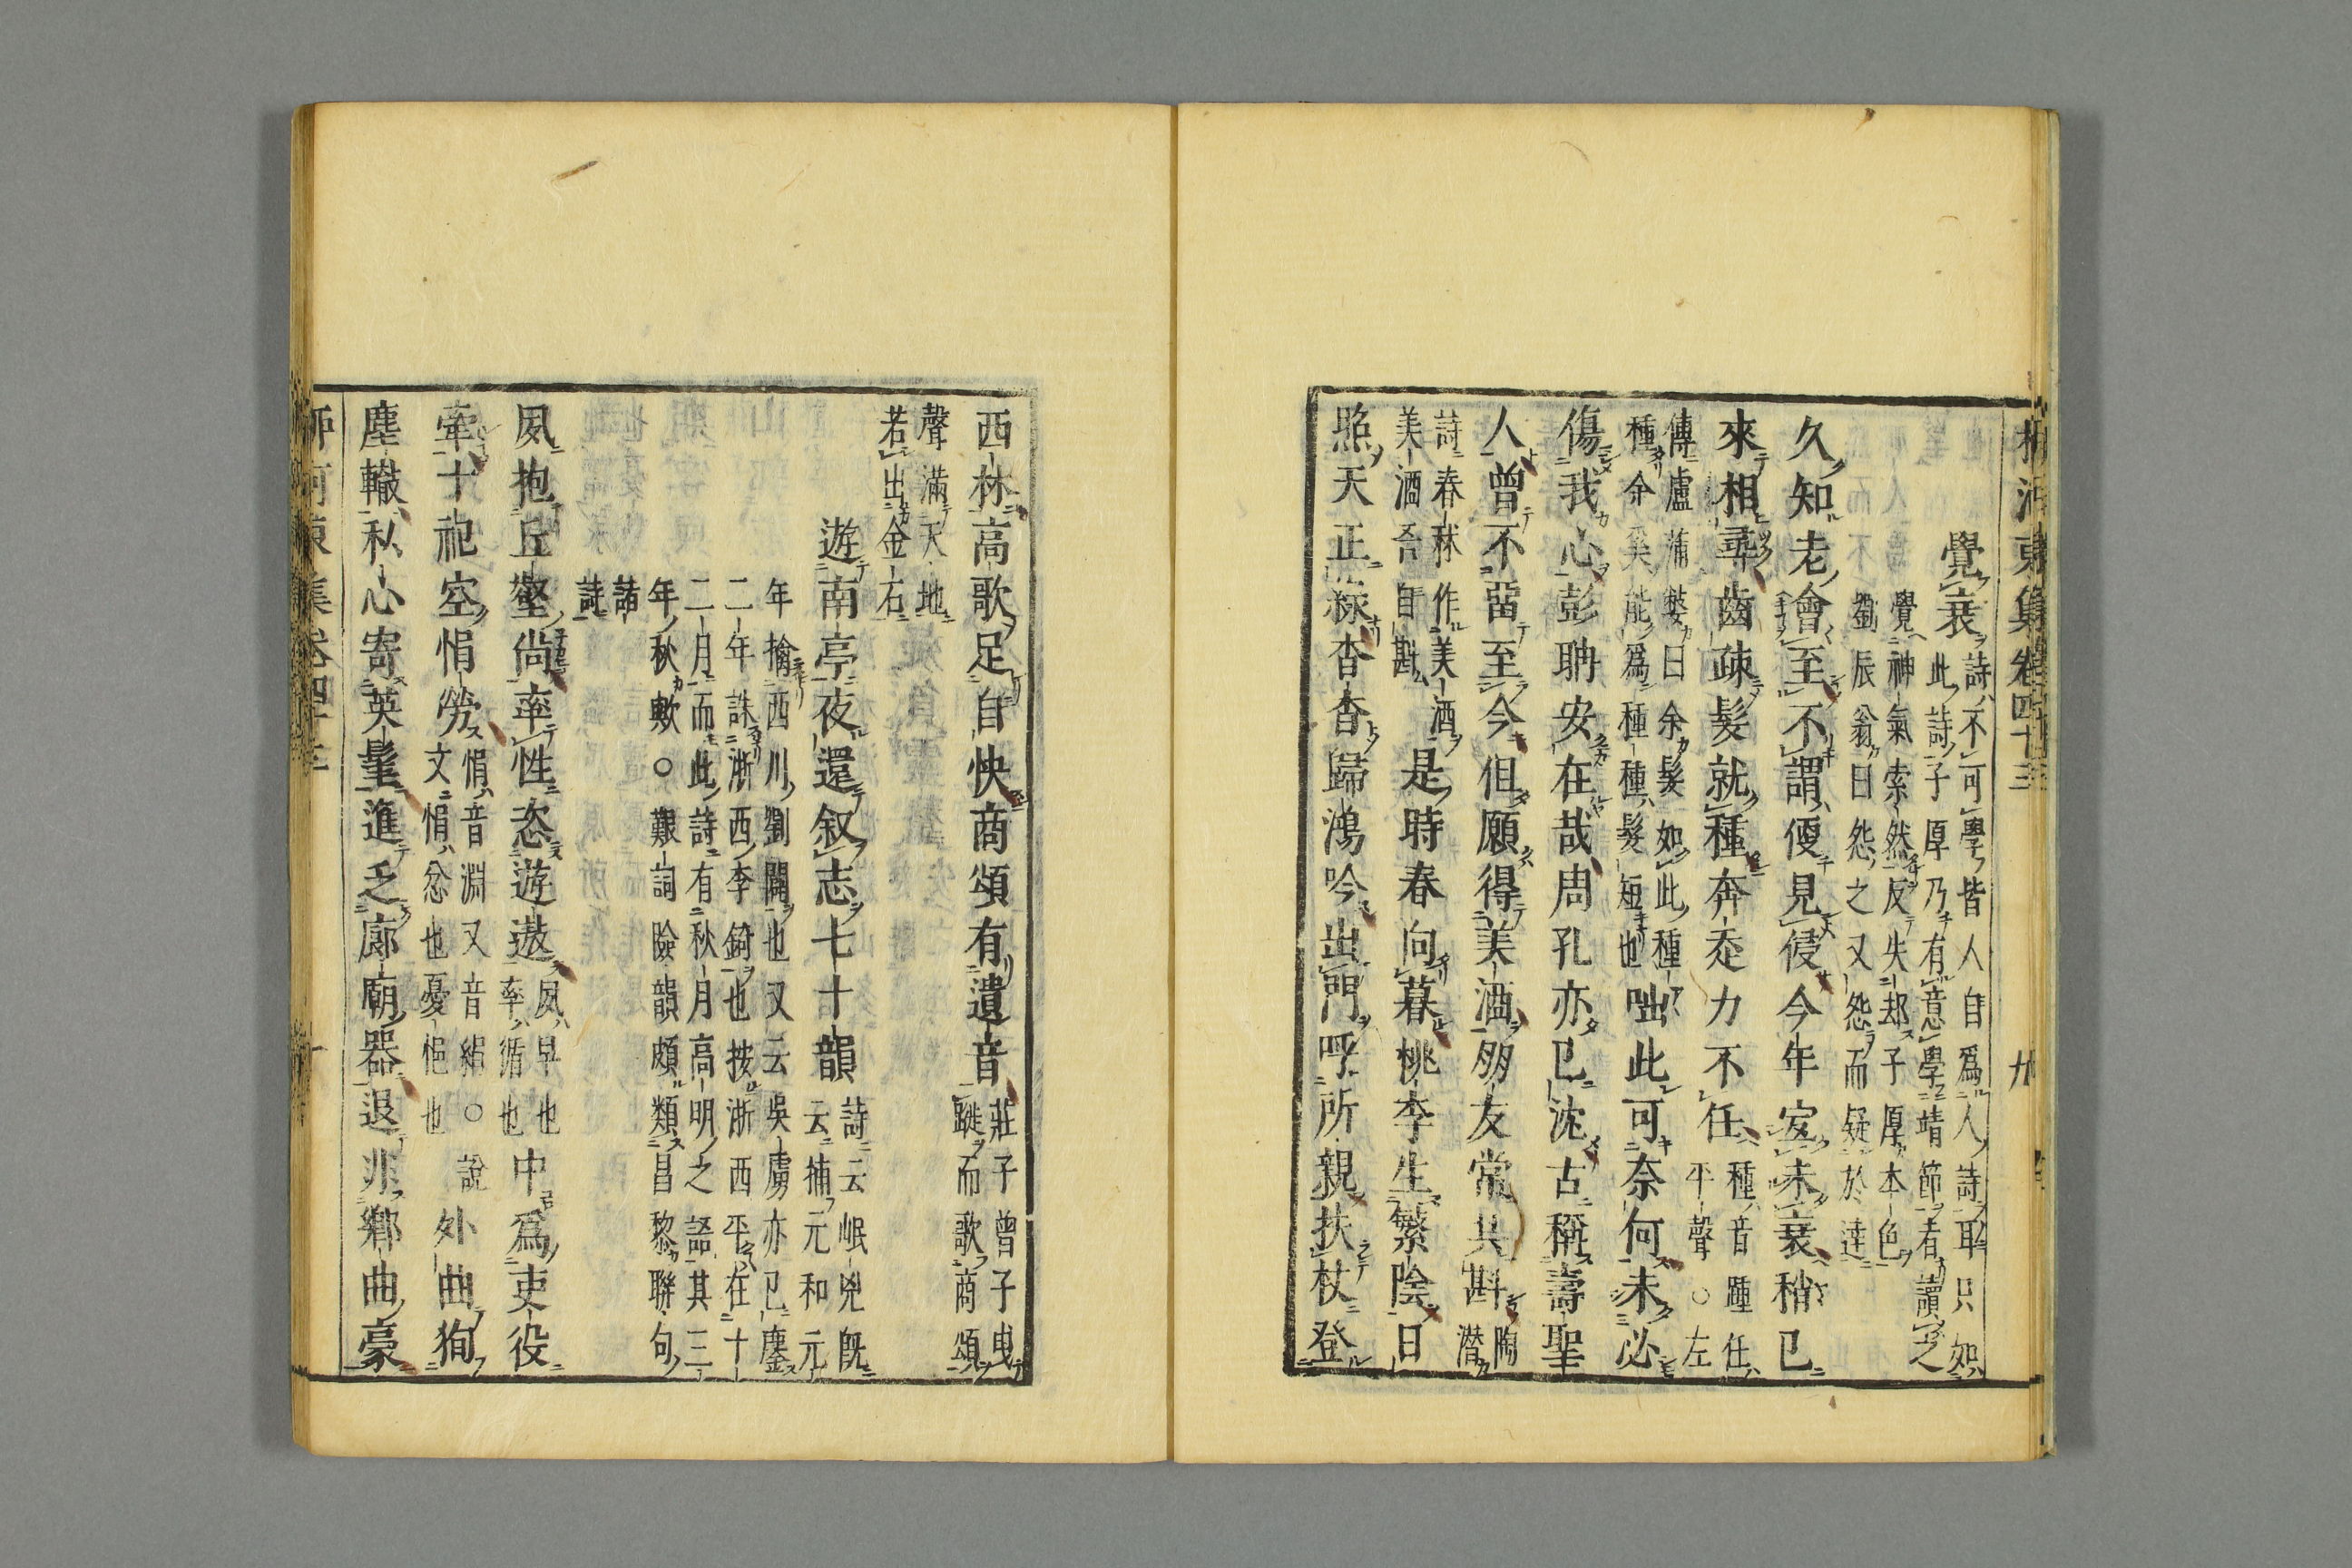 柳河東集卷四十三
廾
覺衰
詩不可學皆人自爲人詩耳只如
此詩子厚乃有意學靖節者讀之
覺神氣索然反失却子厚本色
劉辰翁曰怨之又怨而疑於達
久知老會至不謂便見侵今年宜未衰稍已
來相尋齒疎髮就種奔走力不任
種音踵任
平聲○左
傳盧蒲嫳曰余髮如此種
種余奚能爲種種髮短也
咄此可奈何未必
傷我心彭聃安在哉周孔亦已沈古稱壽聖
人曾不留至今但願得美酒朋友常共斟
陶潛
詩春秫作美酒
美酒吾自斟
是時春向暮桃李生繁陰日
照天正綠杳杳歸鴻吟出門呼所親扶杖登
西林高歌足自快商頌有遺音
莊子曾子曳
蹝而歌商頌
聲滿天地
若出金石
遊南亭夜還叙志七十韻
詩云岷兇旣
云捕元和元
年擒西川劉闢也又云吳虜亦已鏖
二年誅浙西李錡也按浙西平在十
二月而此詩有秋月高明之語其三
年秋歟○艱詞險韻頗類昌黎聯句
諸
詩
夙抱丘壑尙率性恣遊遨
夙早也
率循也
中爲吏役
牽十祀空悁勞
悁音淵又音絹○說
文悁忿也憂悒也
外曲狥
塵轍私心寄英髦進乏廊廟器退非鄕曲豪
柳河東集卷四十三